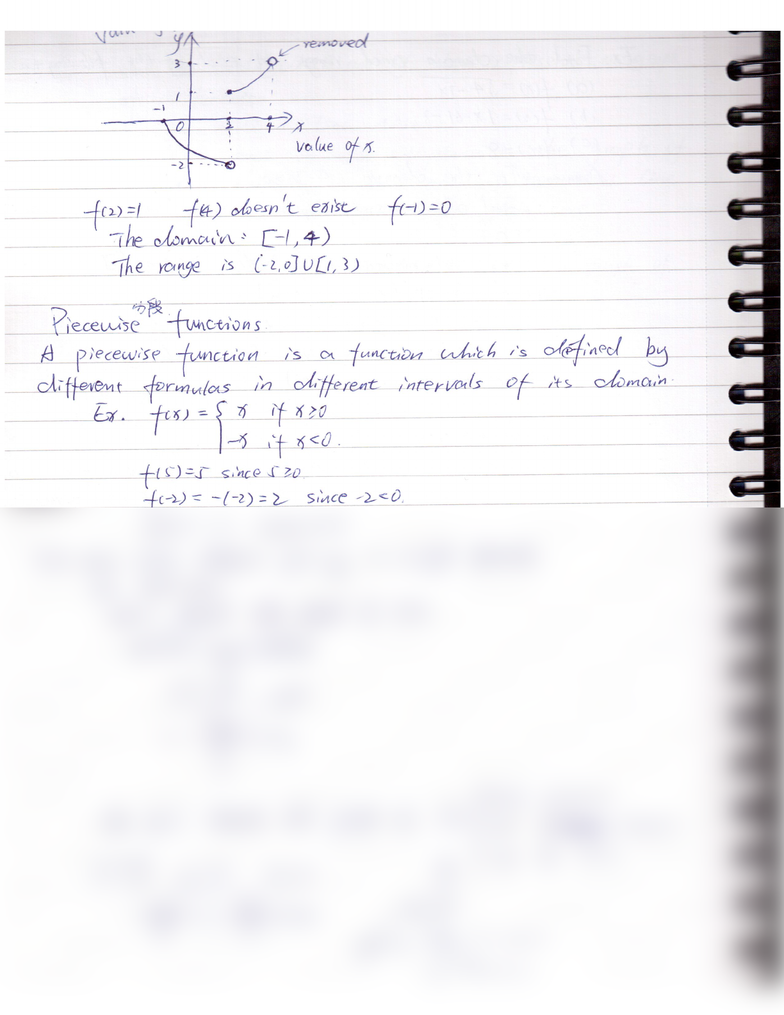 y
removed
3
1
-1
0 2 4 x
value of x.
-2
f(2)=1 f(4) doesn't exist f(-1)=0
The domain: [-1, 4)
The range is (-2,0]∪[1,3)
分段
Piecewise functions.
A piecewise function is a function which is defined by
different formulas in different intervals of its domain.
Ex. f(x) = { x if x≥0
-x if x<0.
f(5)=5 since 5≥0
f(-2) = -(-2)=2 since -2<0.